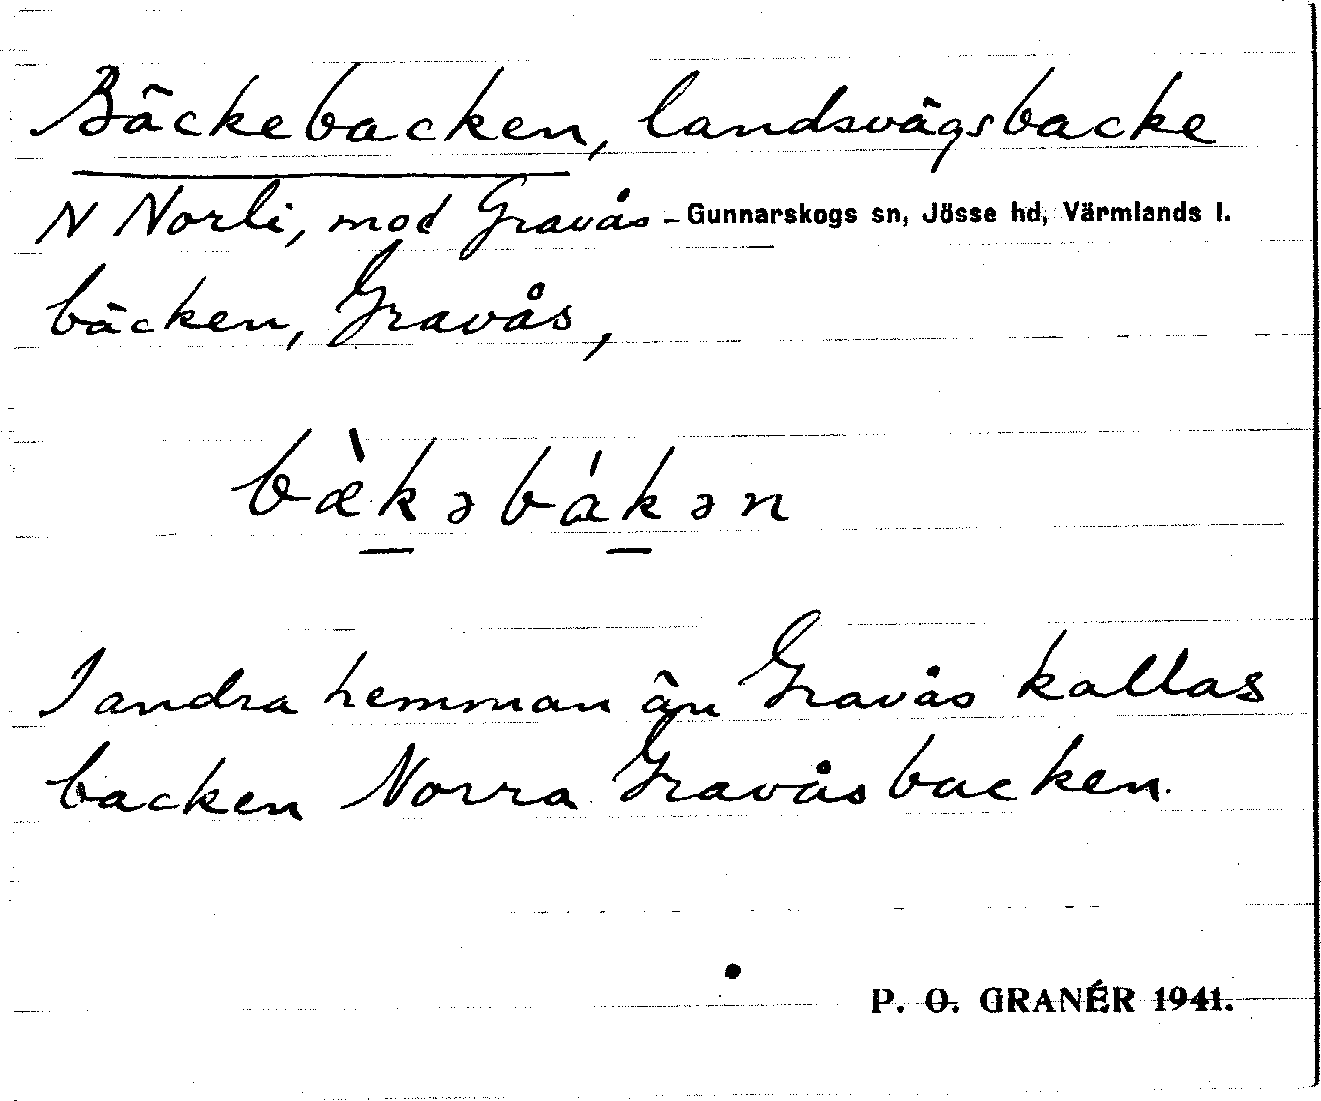 Bäckebacken, landsvägsbacke
N Norli, mod Gravås- Gunnarskogs sn, Jösse hd, Värmlands l.
bäcken, Gravås,
bæ̀k̲əbák̲ən
I andra hemman än Gravås kallas
backen Norra Gravåsbacken.
P. O. GRANÉR 1941.